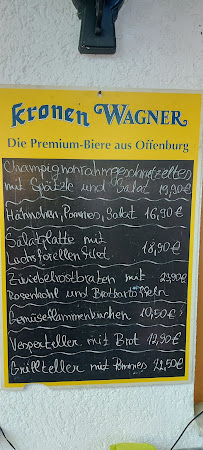 Kronen WAGNER
Die Premium-Biere aus Offenburg
Champignonrahmgeschnetzeltes
mit Spätzle und Salat 19,90€
Hähnchen, Pommes, Salat 16,90€
Salatplatte mit
Lachsforellenfilet. 18,90€
Zwiebelrostbraten mit 23,90€
Rosenkohl und Bratkartoffeln
Gemüseflammenkuchen 10,50€
Vesperteller mit Brot 12,90€
Grillteller mit Pommes 22,50€